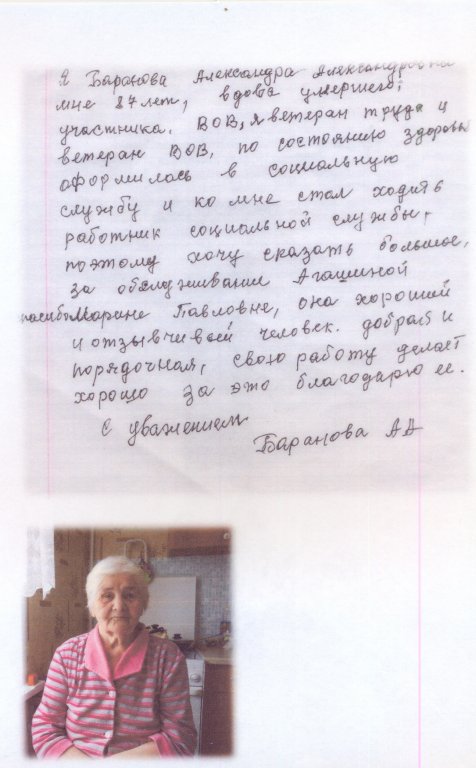 Я Баранова Александра Александровна
мне 87 лет, вдова умершего,
участника. ВОВ, я ветеран труда и
ветеран ВОВ, по состоянию здоровья
оформилась в социальную
службу и ко мне стал ходить
работник социальной службы,
поэтому хочу сказать большое,
за обслуживании Агашиной
спасибо Марине Павловне, она хороший
и отзывчивый человек. добрая и
порядочная, свою работу делает
хорошо за это благодарю ее.
С уважением
Баранова АА